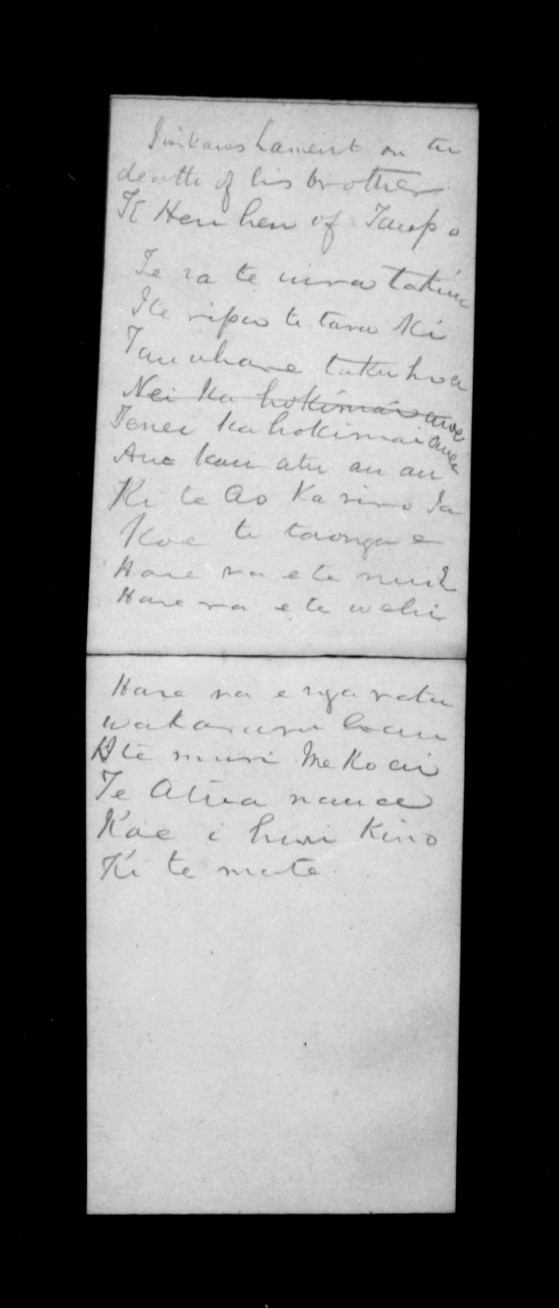 lament on the
death of his brother
Te Heu heu of Taupo
Te ra te uira
I te ripa te tara ki
Tauwhare taku hoa
Nei ka hokimai
Tenei ka hokimai
Ana kau atu au au
Ki te Ao Ka rimo Ia
Koe te taonga e
Hare ra e te
Hare ra e te wehi
Hare ra e nga ratu
hau
te muri Me Ko
Te Atua nana
Koe i huri Kino
Ki te mate